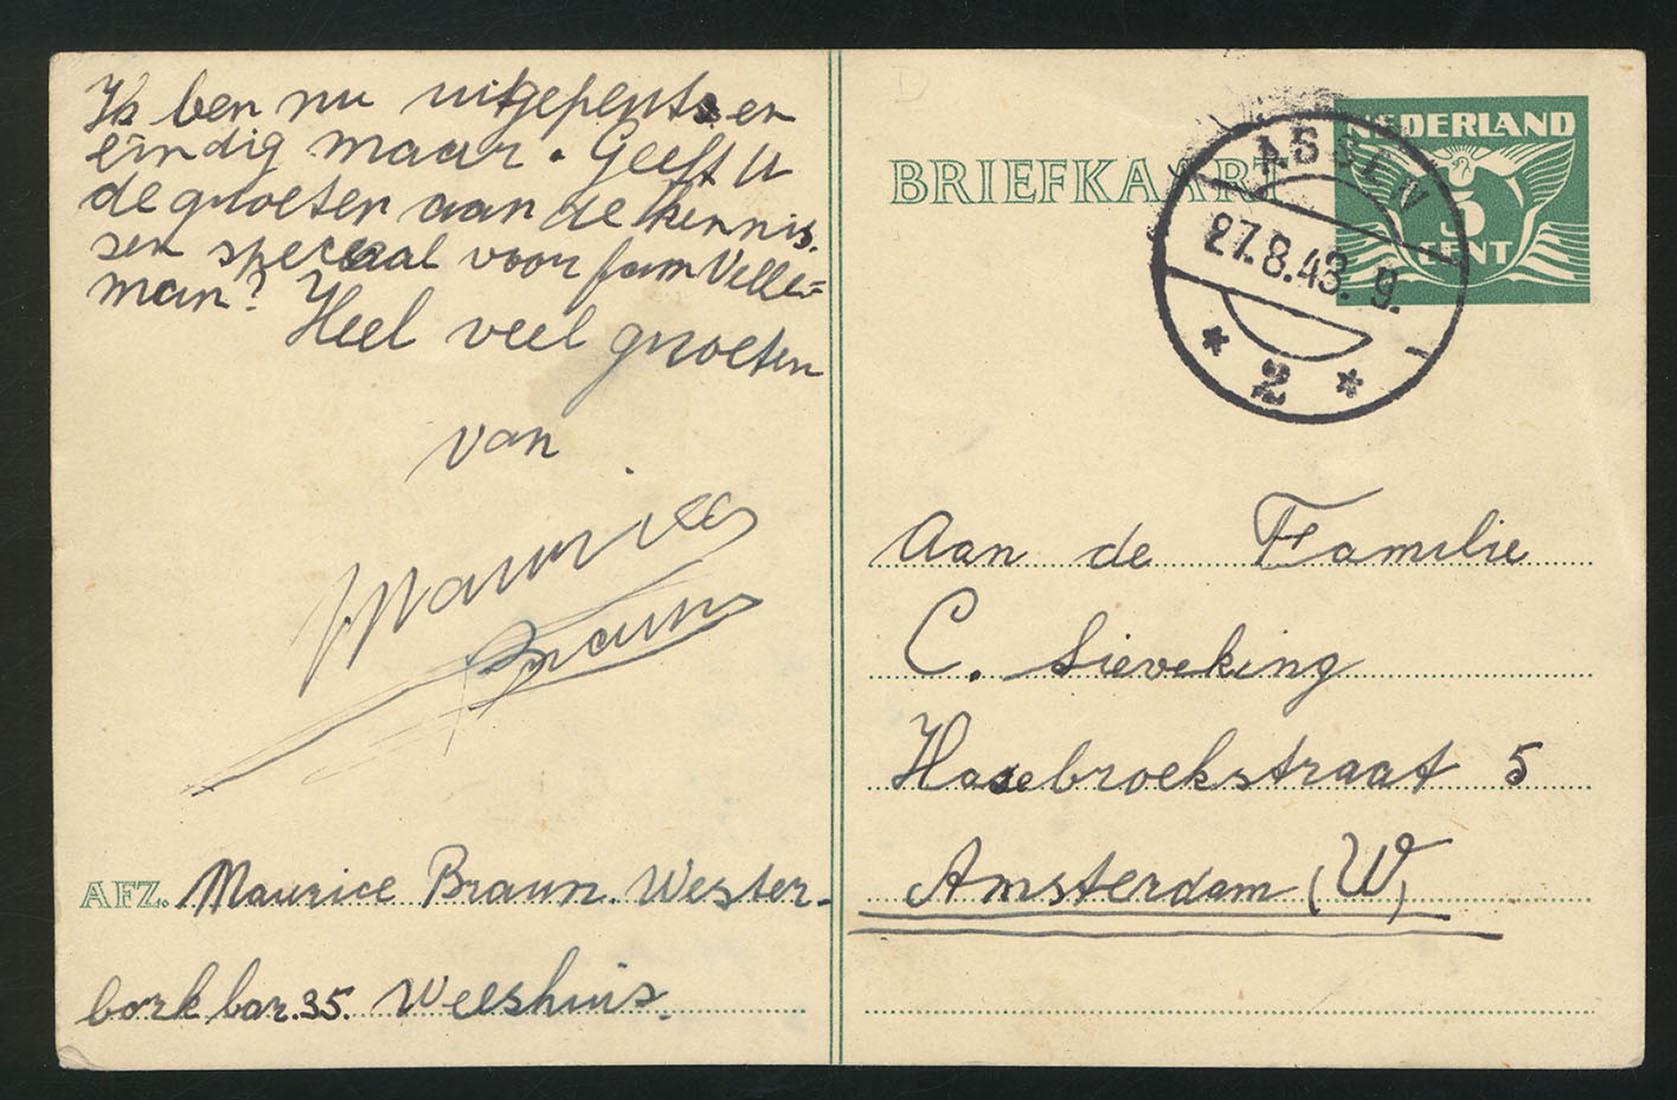 Ik ben nu uitgepent en
eindig maar. Geeft U
de groeten aan de kennis.
sen speciaal voor fam Velle=
man? Heel veel groeten
van
Maurice
Braun
AFZ. Maurice Braun. Wester-
bork bar. 35. Weeshuis.
BRIEFKAART
NEDERLAND
5
CENT
ASSEN
27.8.43. 9.
* 2 *
Aan de Familie
C. Sieveking
Hasebroekstraat 5
Amsterdam (W)